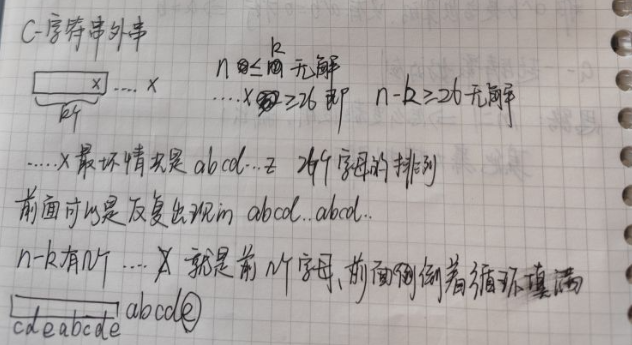 C-字符串外串
x .... x
k个
n ≤ k 无解
....x ≥26 即 n-k≥26无解
.....x 最坏情况是 abcd...z 26个字母的排列
前面可以是反复出现的 abcd..abcd..
n-k有N个 .... x 就是前N个字母、前面倒倒着循环填满
cdeabcde abcde